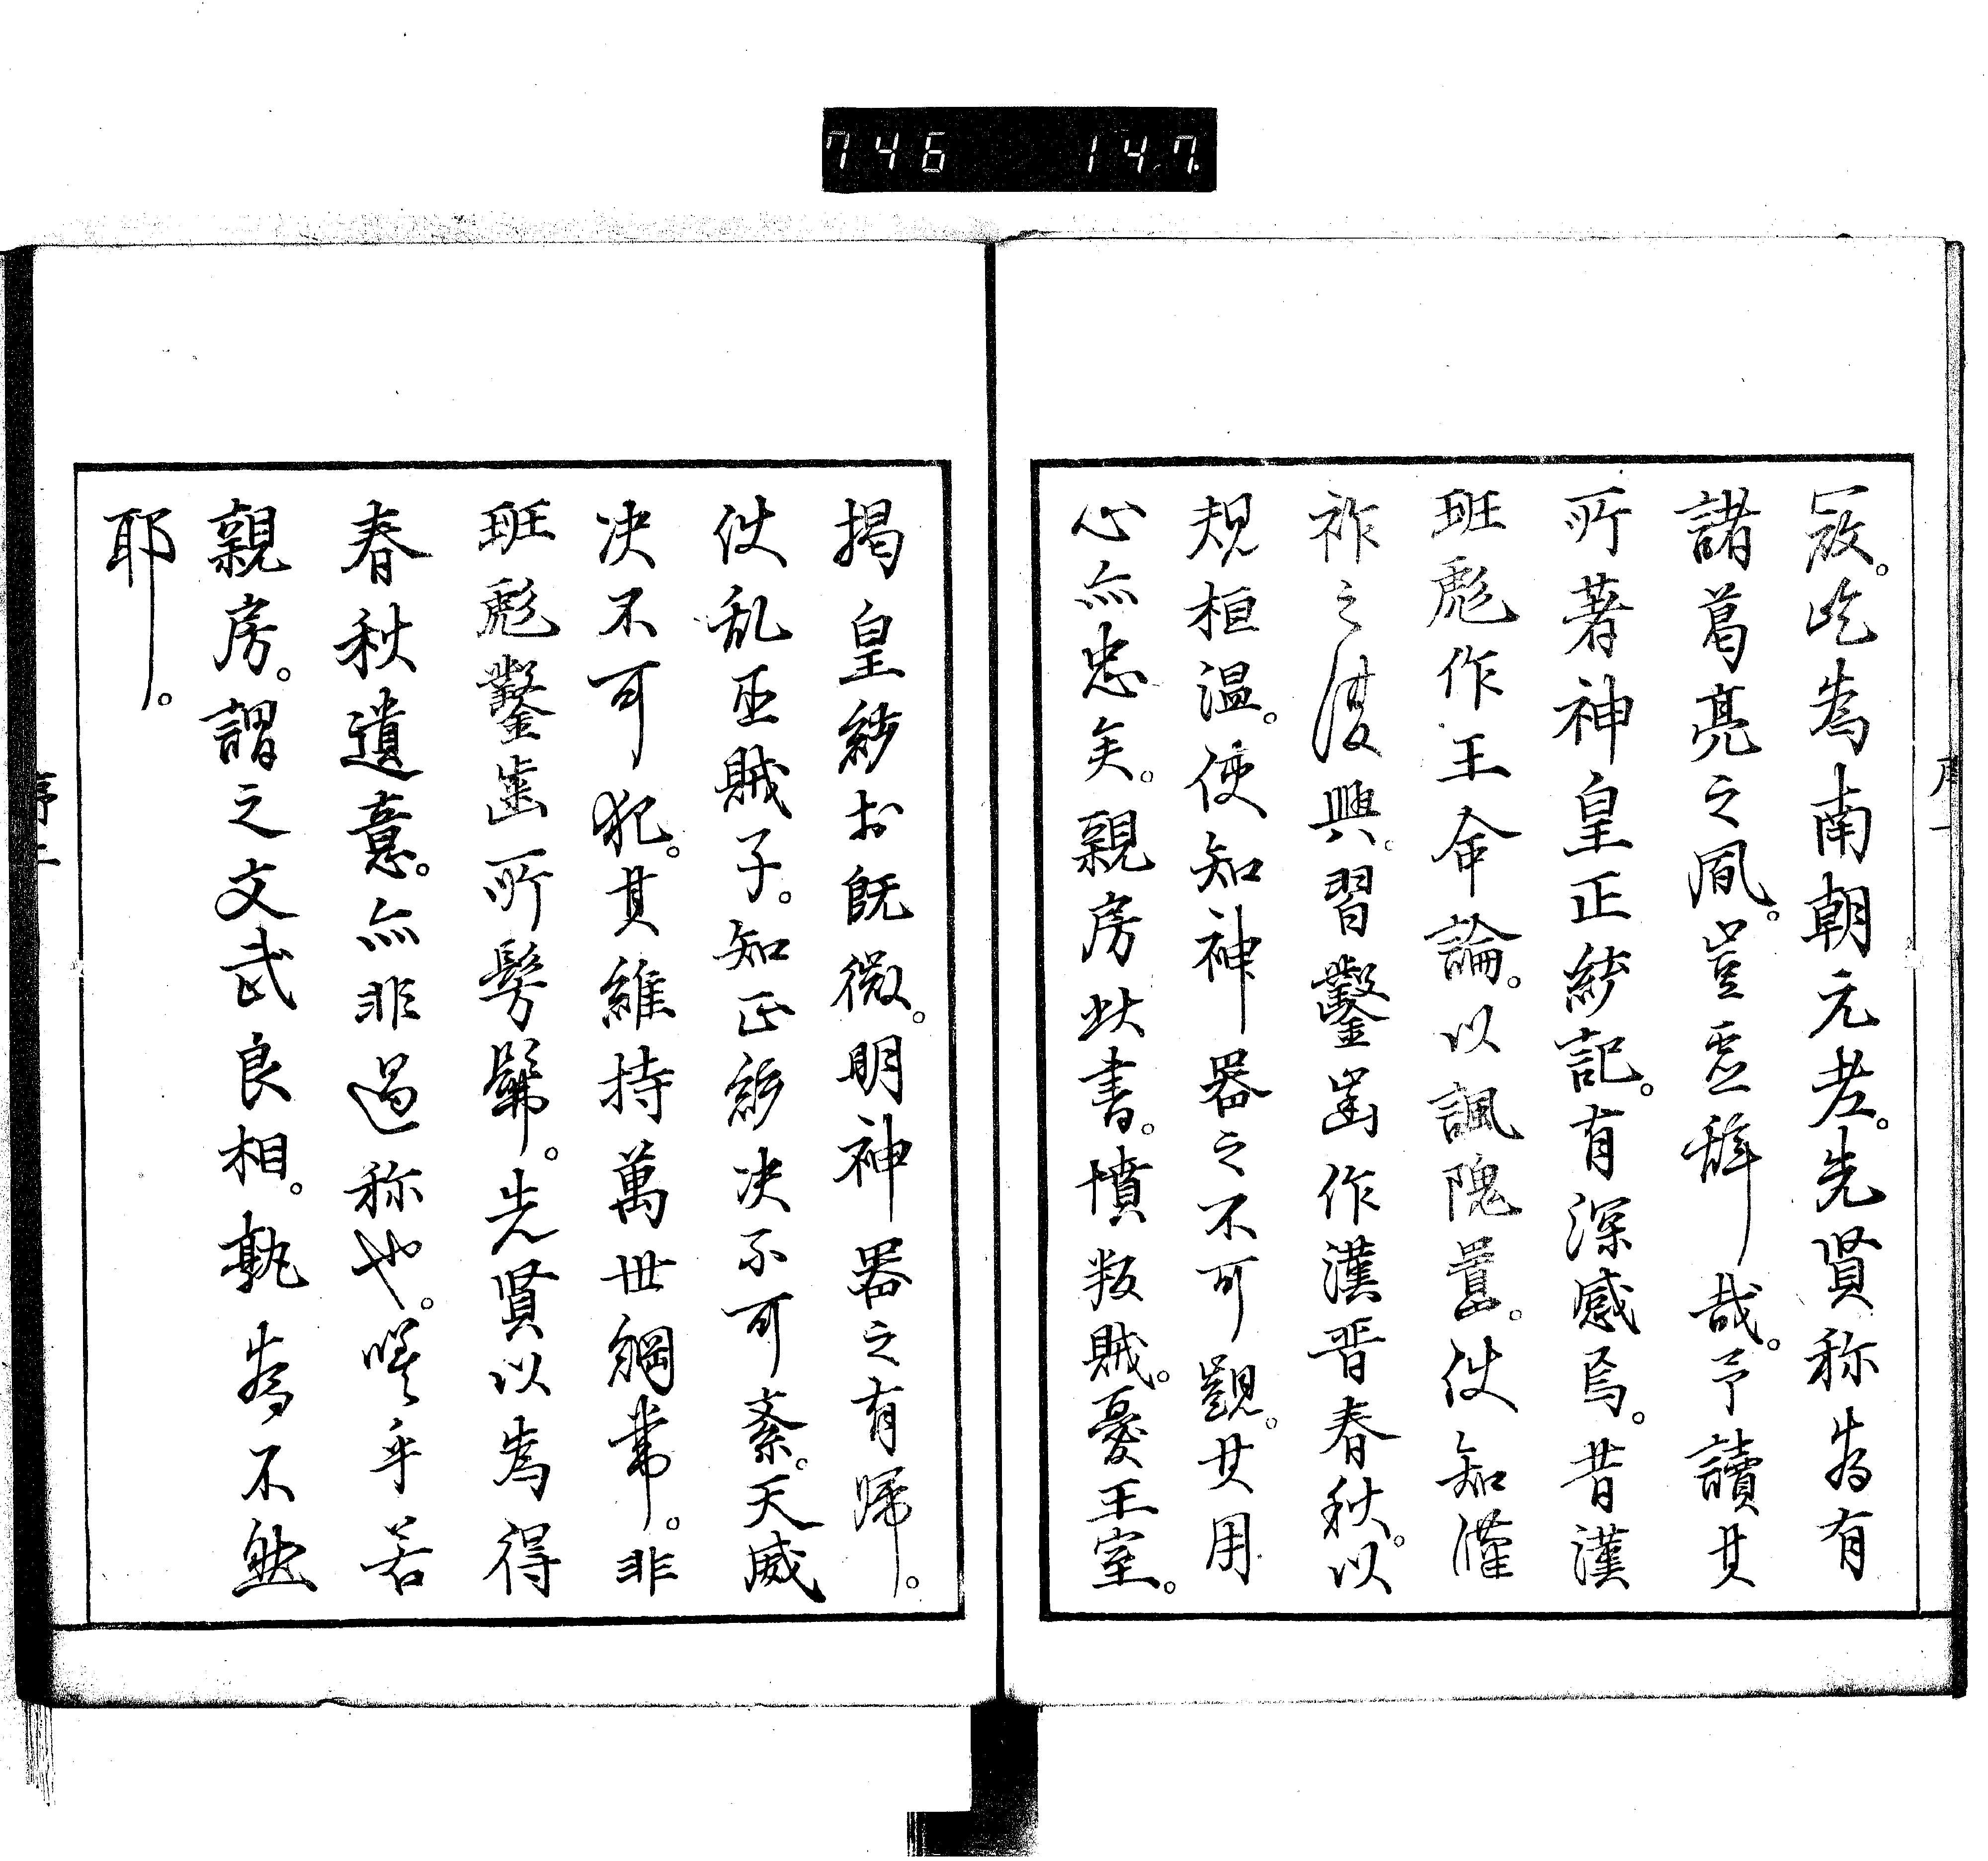 746 147
序一
寇。屹為南朝元老。先賢称為有
諸葛亮之風。豈虚辞哉。予讀其
所著神皇正統記。有深感焉。昔漢
班彪作王命論。以諷隗囂。使知漢
祚之復興。習鑿齒作漢晋春秋。以
規桓温。使知神器之不可覬。其用
心亦忠矣。親房此書。憤叛賊。憂王室。
揭皇統於既微。明神器之有帰。
使乱臣賊子。知正統决不可紊。天威
决不可犯。其維持萬世綱常。非
班彪鑿齒所髣髴。先賢以為得
春秋遺意。亦非過称也。嗟乎若
親房。謂之文武良相。孰為不然
耶。
序二